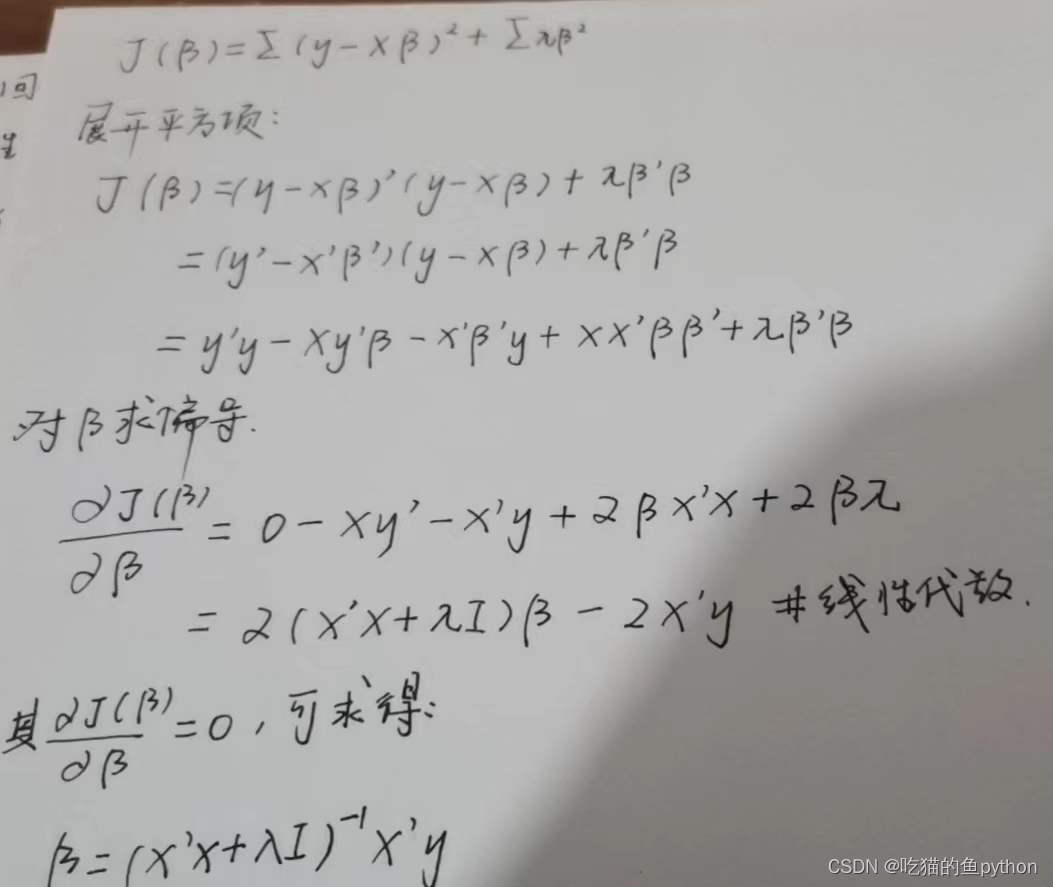 J(β)=Σ(y-xβ)²+Σλβ²
回
展开平方项:
J(β)=(y-xβ)'(y-xβ)+λβ'β
=(y'-x'β')(y-xβ)+λβ'β
=y'y-xy'β-x'β'y+xx'ββ'+λβ'β
对β求偏导.
∂J(β)/∂β=0-xy'-x'y+2βx'x+2βλ
=2(x'x+λI)β-2x'y #线性代数.
其∂J(β)/∂β=0,可求得:
β=(x'x+λI)⁻¹x'y
CSDN @吃猫的鱼python